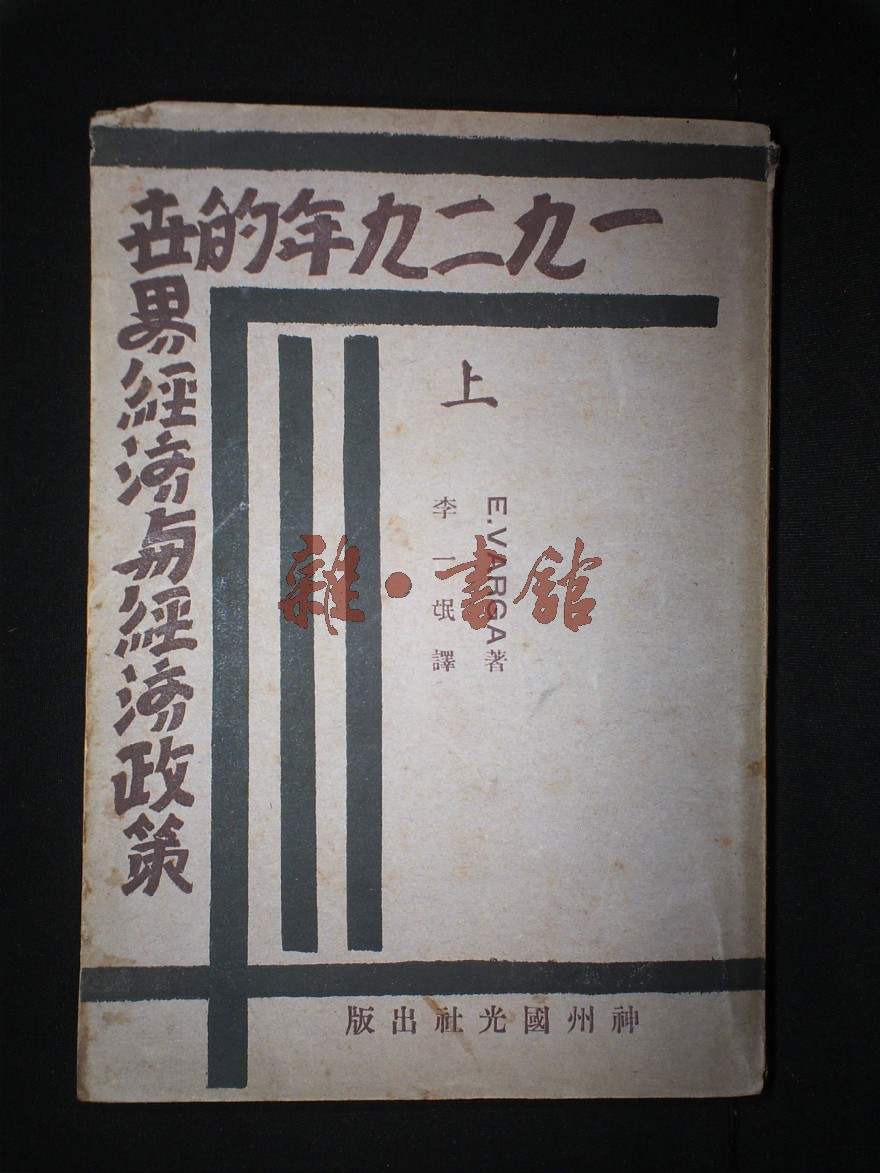 一九二九年的世界經济与經济政策
上
E.VARGA 著
李一氓 譯
神州國光社出版
雜·書館